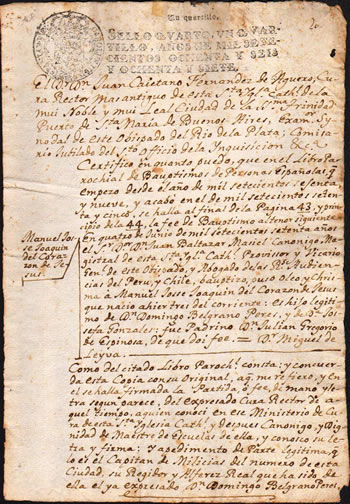 Un quartillo.
SELLO QUARTO, UN QVAR-
TILLO, AÑOS DE MIL SETE-
CIENTOS OCHENTA Y SEIS
Y OCHENTA Y SIETE.
El D.or D.n Juan Caietano Fernandez de Aguero, Cu-
ra Rector mas antiguo de esta S.ta Ygl.a Cath.l de la
mui Noble y mui Leal Ciudad de la SS.ma Trinidad
Puerto de S.ta Maria de Buenos Aires, Exam.or Sy-
nodal de este Obispado del Rio de la Plata; Comisa-
rio Titulado del S.to Officio de la Inquisicion &.a
Certifico en quanto puedo, que en el Libro Pa-
rrochial de Bauptismos de Personas Españolas, q.
empezó desde el año de mil setecientos sesenta
y nueve, y acabó en el de mil setecientos seten-
ta y cinco, se halla al fin de la Pagina 43, y prin-
cipio de la 44, la fe de Baptismo al tenor siguiente
Manuel Jose
Joaquin
del Cora-
zon de Je-
sus.
En quatro de Junio de mil setecientos setenta años
el S.or D.or D.n Juan Baltazar Maciel Canonigo Ma-
gistral de esta S.ta Ygl.a Cath.l Provisor y Vicario
Gen.l de este Obispado, y Abogado de las R.s Audien-
cias del Peru, y Chile, bauptizó, puso oleo y chrisma
á Manuel Josse Joaquin del Corazon de Jesus
que nació ahier tres del corriente: es hijo legitimo
de D.n Domingo Belgrano Peres, y de D.a Jo-
sefa Gonzales: fue Padrino D.n Julian Gregorio
de Espinosa, de que doi fee. = D.or Miguel de
Leyva.
Como del citado Libro Paroch.l consta; y concuer-
da esta Copia con su Original, á q. me refiero, y en
el se halla firmada la Partida, ó fee, de mano y le-
tra segun parece, del expresado Cura Rector de
aquel tiempo, a quien conocí en ese Ministerio de Cu-
ra de esta S.ta Yglesia Cath.l y despues Canonigo, y Dig-
nidad de Maestre de Escuelas de ella, y conosco su le-
tra y firma: Y á pedimento de Parte legitima, q.
lo es el Capitan de Milicias del numero de esta
Ciudad, su Regidor y Alferez Real que ha sido de
ella el ya expresado D.n Domingo Belgrano Peres,